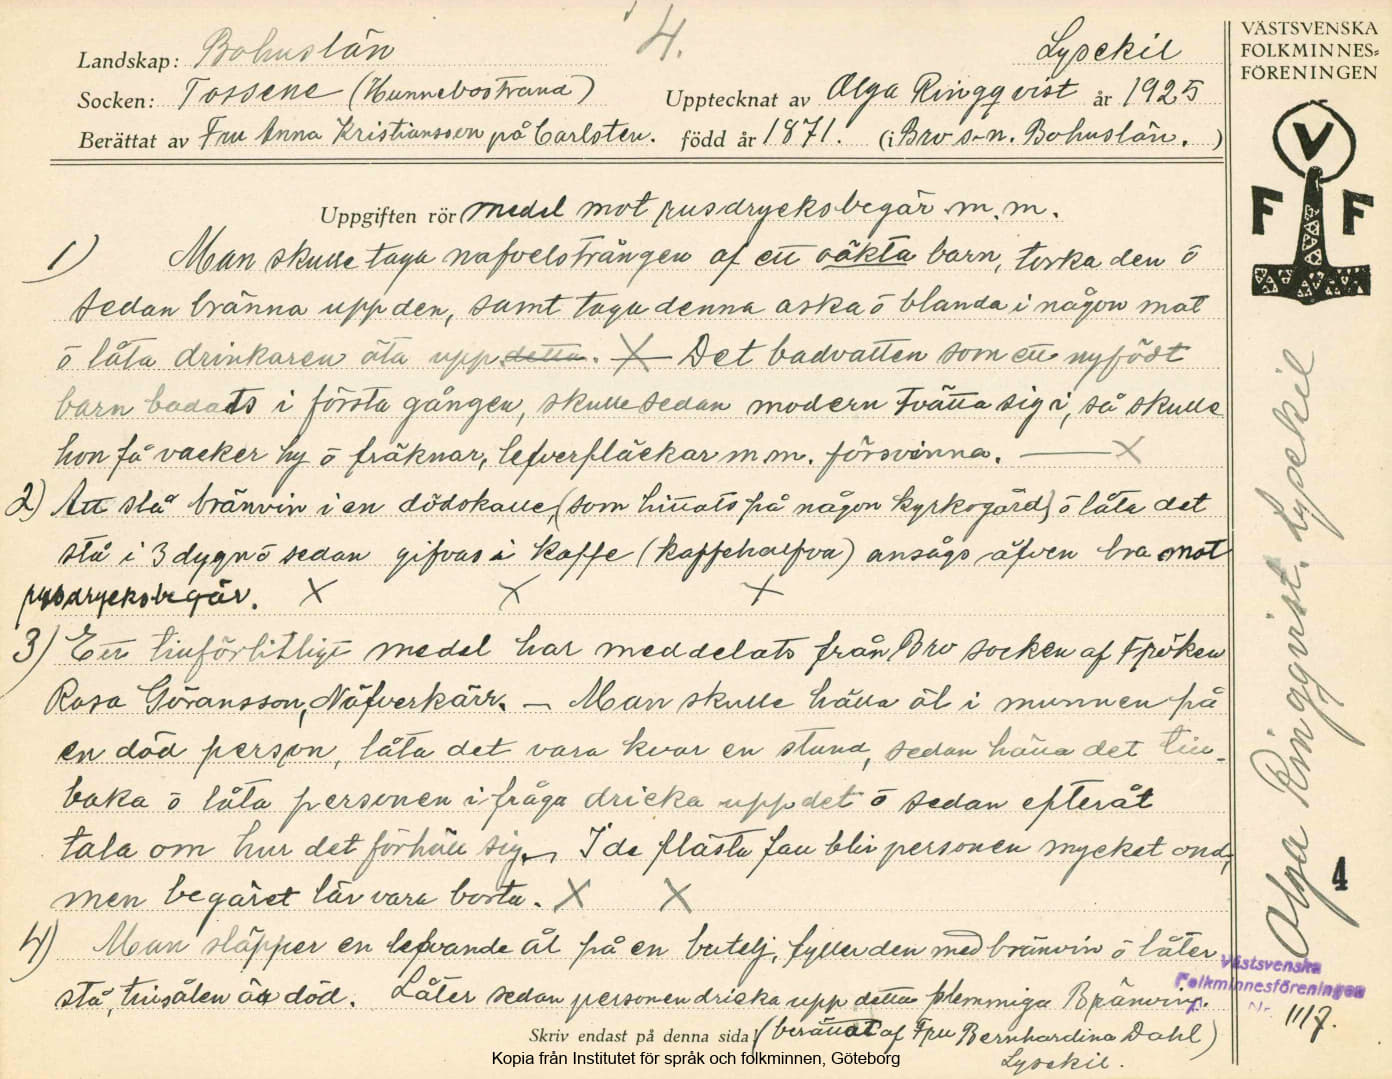 4.
Landskap: Bohuslän
Lysekil
Socken: Tossene (Hunnebostrand)
Upptecknat av Olga Ringqvist år 1925
Berättat av Fru Anna Kristiansson på Carlsten.
född år 1871. (i Bro s-n. Bohuslän.)
Uppgiften rör medel mot rusdrycksbegär m.m.
1) Man skulle taga nafvelsträngen af ett oäkta barn, torka den ō
sedan bränna upp den, samt taga denna aska ō blanda i någon mat
ō låta drinkaren äta upp detta. X — Det badvatten som ett nyfödt
barn badats i första gången, skulle sedan modern tvätta sig i, så skulle
hon få vacker hy ō fräknar, lefverfläckar m.m. försvinna. — X
2) Att slå bränvin i en dödskalle, (som hittats på någon kyrkogård) ō låta det
stå i 3 dygn ō sedan gifvas i kaffe (kaffehalfva) ansågs äfven bra mot
rusdrycksbegär. X X X
3) Ett tillförlitligt medel har meddelats från Bro socken af Fröken
Rosa Göransson, Näfverkärr. — Man skulle hälla öl i munnen på
en död person, låta det vara kvar en stund, sedan hälla det till-
baka ō låta personen i fråga dricka upp det ō sedan efteråt
tala om hur det förhåll sig. — I de flästa fall blir personen mycket ond,
men begäret lär vara borta. X X
4) Man släpper en lefvande ål på en butelj, fyller den med bränvin ō låter
stå, tills ålen är död. Låter sedan personen dricka upp detta slemmiga Bränvin.
Skriv endast på denna sida!
(berättat af Fru Bernhardina Dahl)
Lysekil.
Kopia från Institutet för språk och folkminnen, Göteborg
VÄSTSVENSKA
FOLKMINNES=
FÖRENINGEN
V
F F
Olga Ringqvist. Lysekil
4
Västsvenska
Folkminnesföreningen
Nr. 1117.